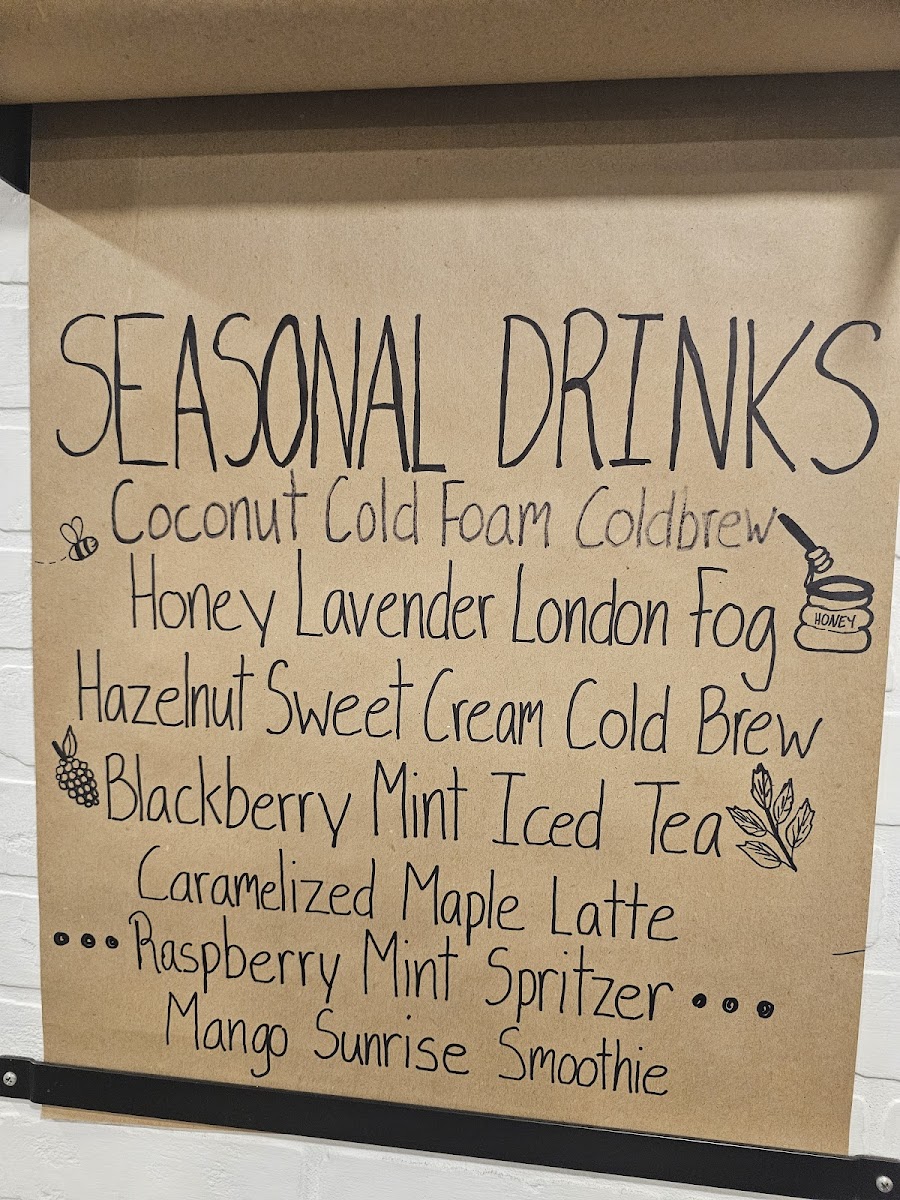 SEASONAL DRINKS
Coconut Cold Foam Coldbrew
Honey Lavender London Fog
HONEY
Hazelnut Sweet Cream Cold Brew
Blackberry Mint Iced Tea
Caramelized Maple Latte
Raspberry Mint Spritzer
Mango Sunrise Smoothie